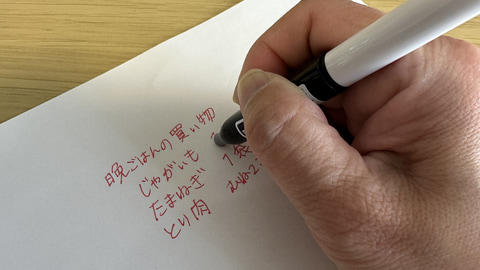 晩ごはんの買い物
じゃがいも
たまねぎ 1袋
とり肉 むね2